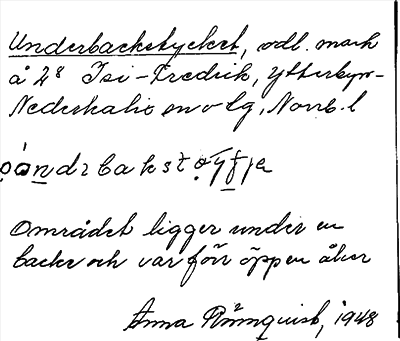 Underbackstycket, odl. mark
å 2⁸ Isi-Fredrik, Ytterbyn-
Nederkalix sn o lg, Norrb. l
Området ligger under en
backe och var förr öppen åker
Anna Rönnquist, 1948